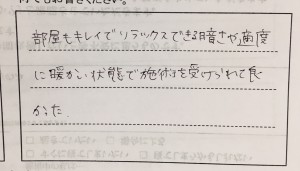 部屋もキレイでリラックスできる暗さや適度
に暖かい状態で施術を受けられて良
かった.